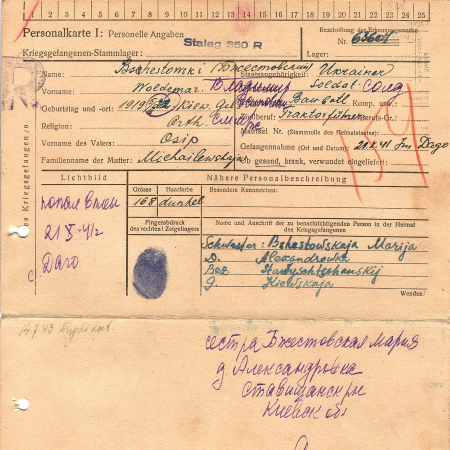 1 2 3 4 5 6 7 8 9 10 11 12 13 14 15 16 17 18 19 20 21 22 23 24 25
Personalkarte I: Personelle Angaben
Beschriftung der Erkennungsmarke
Kriegsgefangenen-Stammlager: Stalag 350 R
Nr. 63607
Lager:
Name: Bschestowski Бжестовский
Staatsangehörigkeit: Ukrainer
Vorname: Woldemar. Владимир
Dienstgrad: Soldat - солд
Geburtstag und -ort: 1919 Kiew. Geb
Truppenteil: Baubatl Komp. usw.:
Religion: Orth.
Zivilberuf: Traktorführer Berufs-Gr.:
Matrikel Nr. (Stammrolle des Heimatstaates):
Vorname des Vaters: Osip
Gefangennahme (Ort und Datum): 21.X.41 Ins. Dago
Familienname der Mutter: Michailewskaja
Ob gesund, krank, verwundet eingeliefert:
des Kriegsgefangenen
Lichtbild
Nähere Personalbeschreibung
Grösse Haarfarbe
Besondere Kennzeichen:
168 dunkel
попал в плен
21 X 41 г
Даго
Fingerabdruck
des rechten! Zeigefingers
Name und Anschrift der zu benachrichtigenden Person in der Heimat
des Kriegsgefangenen
Schwester: Bshestowskaja Marija
D. Alexandrowka
Bez.
g. Kiewskaja
Wenden!
14.7.43
сестра Бжестовская Мария
д. Александровка
Ставищанск р-н
Киевск обл